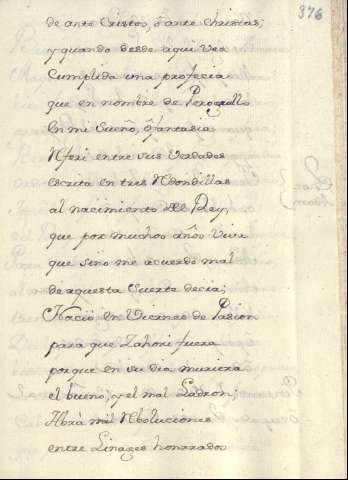 376
de ante Cristos, ô ante Christas;
y quando desde aqui vea
Cumplida una profecia
que en nombre de Perogrullo
en mi Sueño, ô fantasia
Referi entre sus verdades
escrita en tres Redondillas
al nacimiento del Rey,
que por muchos años viva
que sino me acuerdo mal
de aquesta suerte decia;
Naciô en Viernes de Pasion
para que Zahori fuera
porque en su dia muriera
el bueno, y el mal Ladron;
Abrà mil Reboluciones
entre Linages honrrados